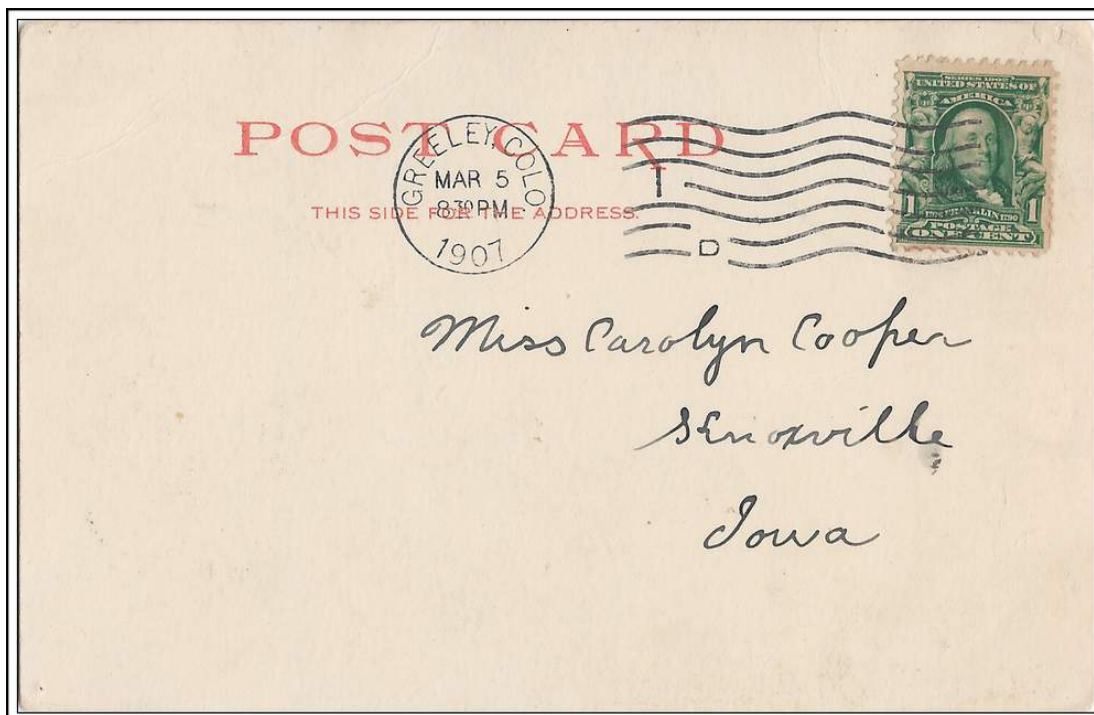 POST CARD
THIS SIDE FOR THE ADDRESS.
GREELEY, COLO.
MAR 5
8 30 PM
1907
1
D
SERIES 1902
UNITED STATES OF
AMERICA
1 1706 FRANKLIN 1790 1
POSTAGE
ONE CENT
Miss Carolyn Cooper
Knoxville
Iowa